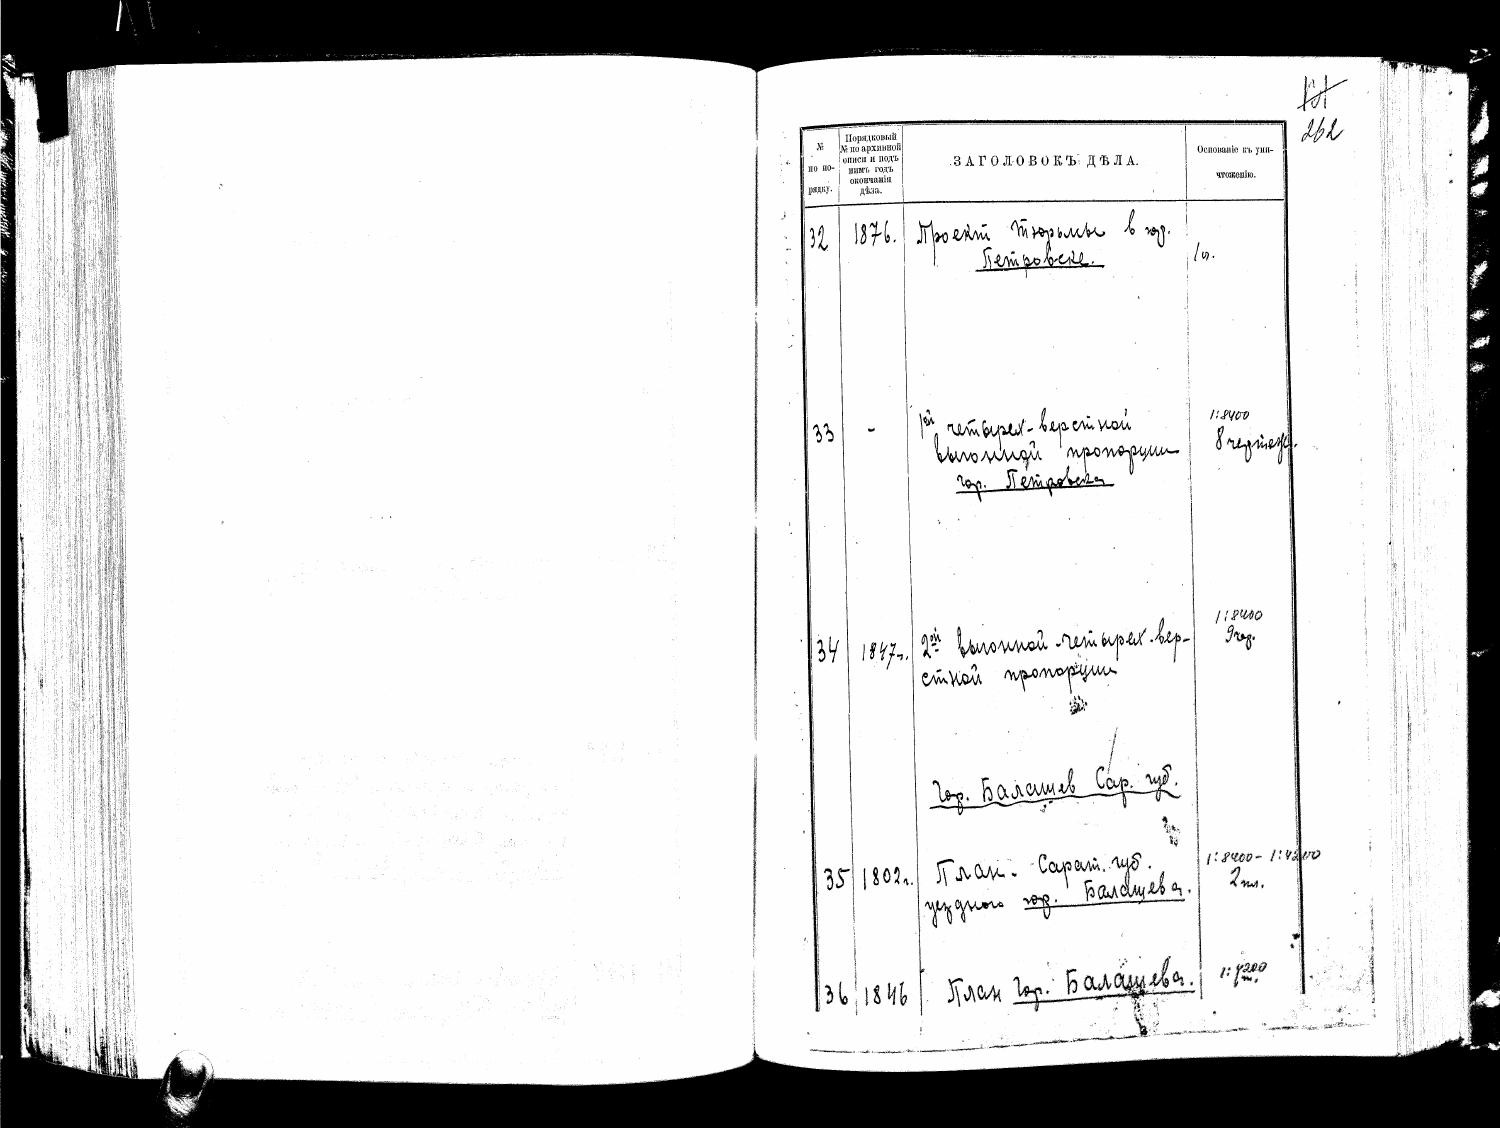 262
№
по по-
рядку.
Порядковый
№ по архивной
описи и подъ
нимъ годъ
окончанія
дѣла.
ЗАГОЛОВОКЪ ДѢЛА.
Основаніе къ уни-
чтоженію.
32 1876. Проект тюрьмы в гор.
Петровске.
1 л.
33 - 1ой четырех-верстной 1:8400
выгонной пропорции 8 чертеж.
гор. Петровска
34 1847 г. 2ой выгонной четырех-вер- 1:8400
стной пропорции 9 чер.
Гор. Балашев Сар. губ.
35 1802 г. План. Сарат. губ. 1:8400 - 1:4200
уездного гор. Балашева. 2 пл.
36 1846 План гор. Балашева. 1:4200